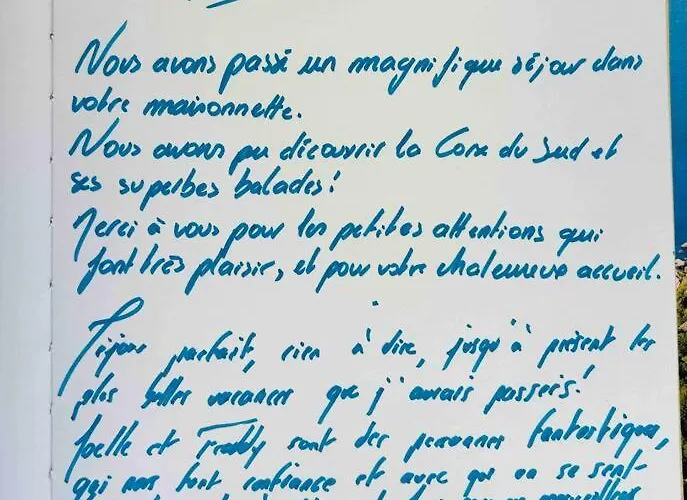 Nous avons passé un magnifique séjour dans
votre maisonnette.
Nous avons pu découvrir la Corse du Sud et
ses superbes balades!
Merci à vous pour les petites attentions qui
font très plaisir, et pour votre chaleureux accueil.
Séjour parfait, rien à dire, jusqu'à présent les
plus belles vacances que j'aurais passées!
Joelle et Freddy sont des personnes fantastiques,
qui nous font confiance et avec qui on se sent-